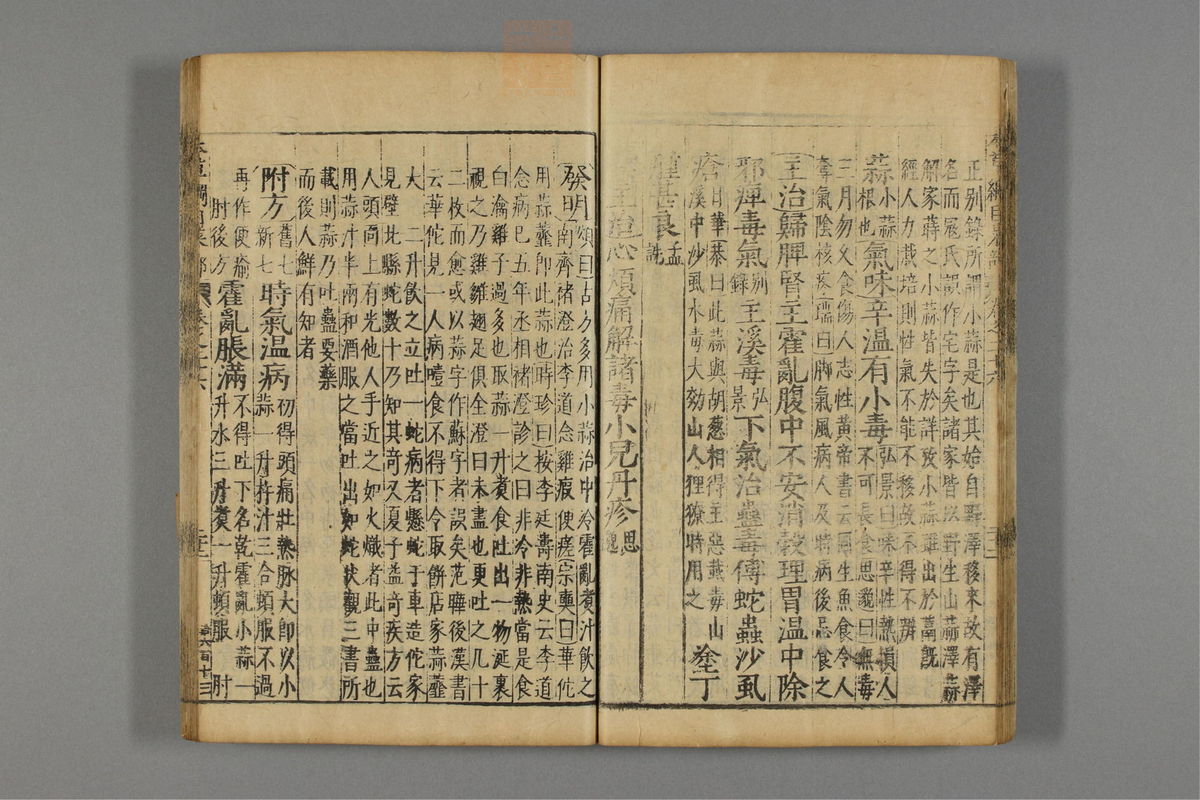 正别錄所謂小蒜是也其始自野澤移來故有澤
名而寇氏誤作宅字矣諸家皆以野生山蒜澤蒜
解家蒔之小蒜皆失於詳攷小蒜雖出於蒚旣
經人力栽培則性氣不能不移故不得不辨
蒜小蒜根也氣味辛溫有小毒弘景曰味辛性熱損人不可長食思邈曰無毒
三月勿久食傷人志性黃帝書云同生魚食令人
奪氣陰核疼瑞曰脚氣風病人及時病後忌食之
主治歸脾腎主霍亂腹中不安消穀理胃溫中除
邪痺毒氣别錄主溪毒弘景下氣治蠱毒傅蛇蟲沙虱
瘡日華恭曰此蒜與胡葱相得主惡䖳毒山溪中沙虱水毒大効山人狸獠時用之塗丁
腫甚良孟詵
主治心煩痛解諸毒小兒丹疹思邈
發明頌曰古方多用小蒜治中冷霍亂煑汁飲之
南齊褚澄治李道念雞瘕便瘥宗奭曰華佗
用蒜虀卽此蒜也時珍曰按李延壽南史云李道
念病已五年丞相褚澄診之曰非冷非熱當是食
白瀹雞子過多也取蒜一升煑食吐出一物涎裹
視之乃雞雛翅足俱全澄曰未盡也更吐之凡十
二枚而愈或以蒜字作蘇字者誤矣范曄後漢書
云華佗見一人病噎食不得下令取餅店家蒜虀
大二升飲之立吐一蛇病者懸蛇于車造佗家
見壁北懸蛇數十乃知其奇又夏子益奇疾方云
人頭靣上有光他人手近之如火熾者此中蠱也
用蒜汁半兩和酒服之當吐出如蛇狀觀三書所
載則蒜乃吐蠱要藥
而後人鮮有知者
附方舊七新七時氣溫病初得頭痛壯熱脉大卽以小蒜一升杵汁三合頓服不過
再作便瘉肘後方霍亂脹滿不得吐下名乾霍亂小蒜一升水三升煑一升頓服肘